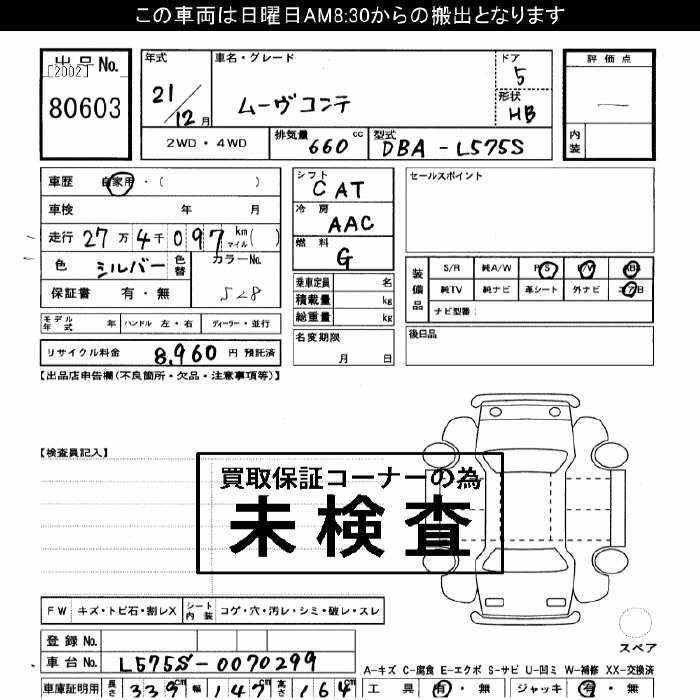 この車両は日曜日AM8:30からの搬出となります
出品No.
[2002]
80603
年式
21/12月
車名・グレード
ムーヴコンテ
ドア
5
形状
HB
2WD・4WD
排気量
660 cc
型式
DBA-L575S
評価点
―
内装
車歴 自家用・( )
車検 年 月
走行 27万4千097 km マイル( )
色 シルバー 色替 カラーNo.
保証書 有・無 S28
モデル年式 年 ハンドル 左・右 ディーラー・並行
リサイクル料金 8,960 円 預託済
シフト
CAT
冷房
AAC
燃料
G
乗車定員 名
積載量 kg
総重量 kg
名変期限
月 日
セールスポイント
装備品
S/R 純A/W P/S P/W ABS
純TV 純ナビ 革シート 外ナビ エアB
ナビ型番:
後日品
【出品店申告欄(不良箇所・欠品・注意事項等)】
【検査員記入】
買取保証コーナーの為
未検査
FW キズ・トビ石・割レX シート内装 コゲ・穴・汚レ・シミ・破レ・スレ
登録No.
車台No. L575S-0070299
車庫証明用 長さ 339cm 幅 147cm 高さ 164cm
スペア
A-キズ C-腐食 E-エクボ S-サビ U-凹ミ W-補修 XX-交換済
工具 有・無 ジャッキ 有・無